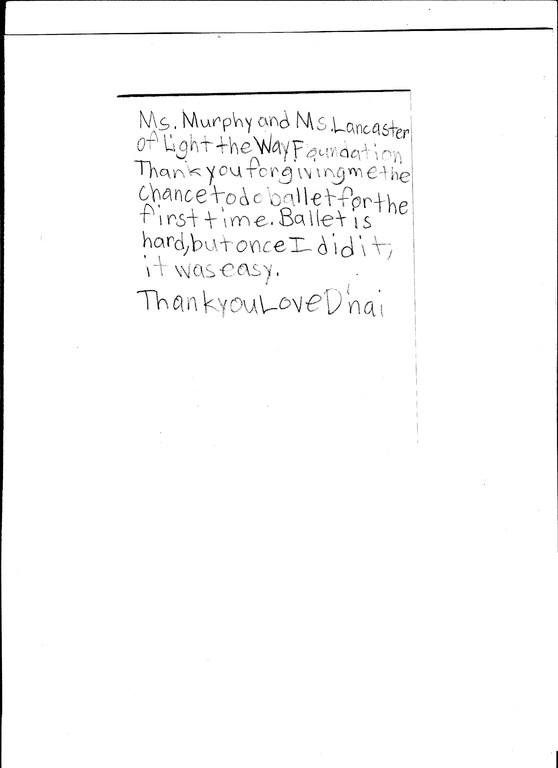 Ms. Murphy and Ms. Lancaster
of Light the Way Foundation
Thank you for giving me the
chance to do ballet for the
first time. Ballet is
hard, but once I did it,
it was easy.
Thank you Love D'nai